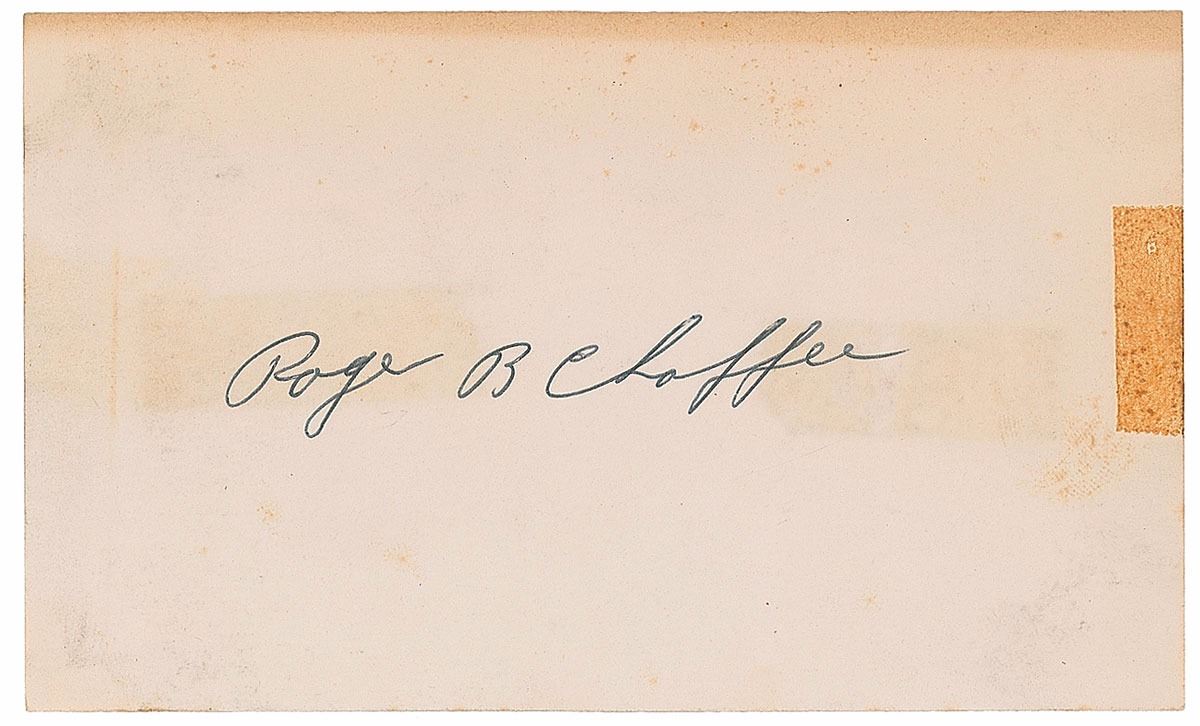 Roger B Chaffee